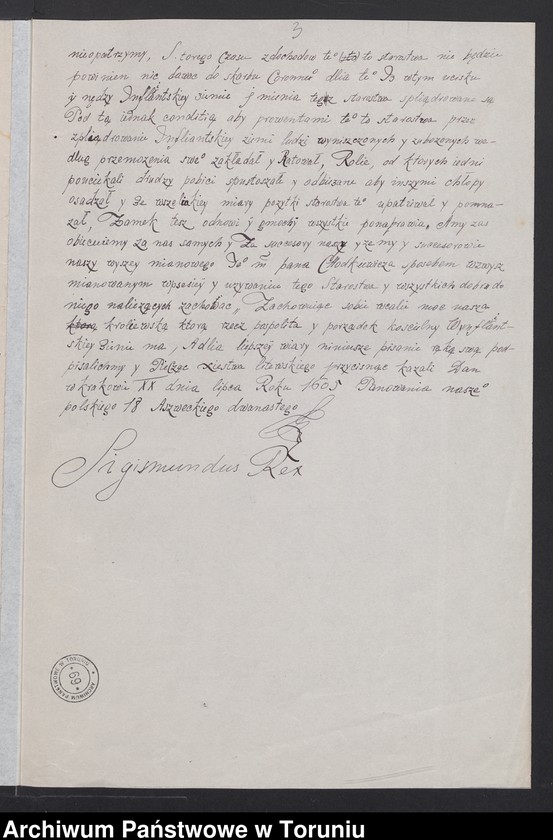 3
nieopatrzymy, S torego Czasu zdochodow te° to starostwa nie będzie
powinien nic dawac do skarbu Coronne° dlia te° Jz wtym ucisku
y nędzy Inflantskiey ziemie y mienia tesz starostwa spliądrowane są
Pod tą iednak conditią aby prowentami te° to starostwa przez
zpliądrowanie Inflianckiey ziemi ludzi wyniszczonych y zubozonych we-
dlug przemozenia swe° zakładał y Ratował, Rolie, od ktorych iedni
pouciekali drudzy pobici spustoszałe y odbiezane aby inszymi chłopy
osadzał y ze wszeliakiey miary pozytki starostwa te° upatrował y pomna-
zał, Zamek tesz odnowi y gmachy wszystkie ponaprawia, Amy zas
obiecuiemy za nas samych y Za successory naszy yze my y successorowie
naszy wyszey mianowego Je° m pana Chodkiewicza sposobem wzwysz
mianowanym wposesiey y uzywaniu tego Starostwa y wszystkich dobr do
niego nalezących zachować, Zachowuiąc sobie wcalie moc naszą
krolewską ktorą rzecz pospolita y porządek koscielny Wynfliant-
skiey Ziemie ma, Adlia liepszey wiary ninieisze pisanie ręką swą pod-
pisalichmy y Pieczęc xięstwa litewskiego przycisnąc kazali Dan
w krakowie XX dnia lipca Roku 1605 Panowania nasze°
polskiego 18 Aszweckiego dwanastego
Sigismundus Rex
ARCHIWUM PAŃSTWOWE W TORUNIU
69
Archiwum Państwowe w Toruniu